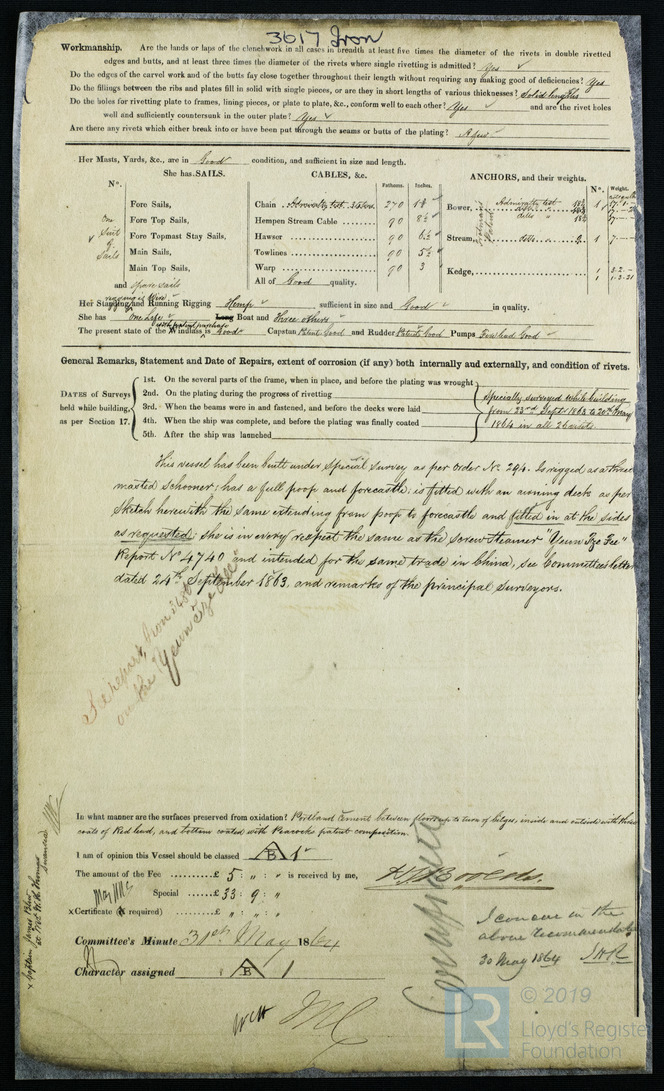 3617 Iron
Workmanship. Are the lands or laps of the clenchwork in all cases in breadth at least five times the diameter of the rivets in double rivetted
edges and butts, and at least three times the diameter of the rivets where single rivetting is admitted? Yes
Do the edges of the carvel work and of the butts fay close together throughout their length without requiring any making good of deficiencies? Yes
Do the fillings between the ribs and plates fill in solid with single pieces, or are they in short lengths of various thicknesses? Solid lengths
Do the holes for rivetting plate to frames, lining pieces, or plate to plate, &c., conform well to each other? Yes and are the rivet holes
well and sufficiently countersunk in the outer plate? Yes
Are there any rivets which either break into or have been put through the seams or butts of the plating? A few
Her Masts, Yards, &c., are in Good condition, and sufficient in size and length.
She has SAILS. CABLES, &c. ANCHORS, and their weights.
Nº. Fathoms. Inches. Nº. Weight.
Fore Sails, Chain 270 Bower, Admiralty test 1
One Suit of Sails
Fore Top Sails, Hempen Stream Cable 90 8½
Fore Topmast Stay Sails, Hawser 90 6½ Stream, 1 7
Main Sails, Towlines 90 5½
Main Top Sails, Warp 90 3 Kedge, 1
and spare sails All of Good quality. 1
rigging is Wire
Her Standing and Running Rigging Hemp sufficient in size and Good in quality.
She has one Life Long Boat and three others
with patent purchase
The present state of the Windlass is Good Capstan Patent Good and Rudder Patent Good Pumps Good
General Remarks, Statement and Date of Repairs, extent of corrosion (if any) both internally and externally, and condition of rivets.
DATES of Surveys held while building, as per Section 17.
1st. On the several parts of the frame, when in place, and before the plating was wrought
2nd. On the plating during the progress of rivetting
3rd. When the beams were in and fastened, and before the decks were laid
4th. When the ship was complete, and before the plating was finally coated
5th. After the ship was launched
Specially surveyed while building
from 23rd Septr 1863 to 20th May
1864 in all 26 visits.
This vessel has been built under Special Survey as per Order No. 294. Is rigged as a three
masted schooner; has a full poop and forecastle; is fitted with an awning deck as per
Sketch herewith the same extending from poop to forecastle and fitted in at the sides
as requested. She is in every respect the same as the Screw Steamer
Report No 4740 and intended for the same trade in China, see Committee's letter
dated 24th September 1863, and remarks of the principal Surveyors.
See report, Iron
on the
In what manner are the surfaces preserved from oxidation? Portland Cement between floors up to turn of bilges, inside and outside with three
coats of Red lead, and bottom coated with Peacocks patent composition.
I am of opinion this Vessel should be classed B 1
The amount of the Fee £ 5 : „ : „ is received by me,
Special £ 33 : 9 : „
Certificate (if required) £ „ : „ : „
Committee's Minute 31st May 1864
Character assigned B 1
I concur in the
above recommendation
30 May 1864
LR
© 2019
Lloyd's Register
Foundation